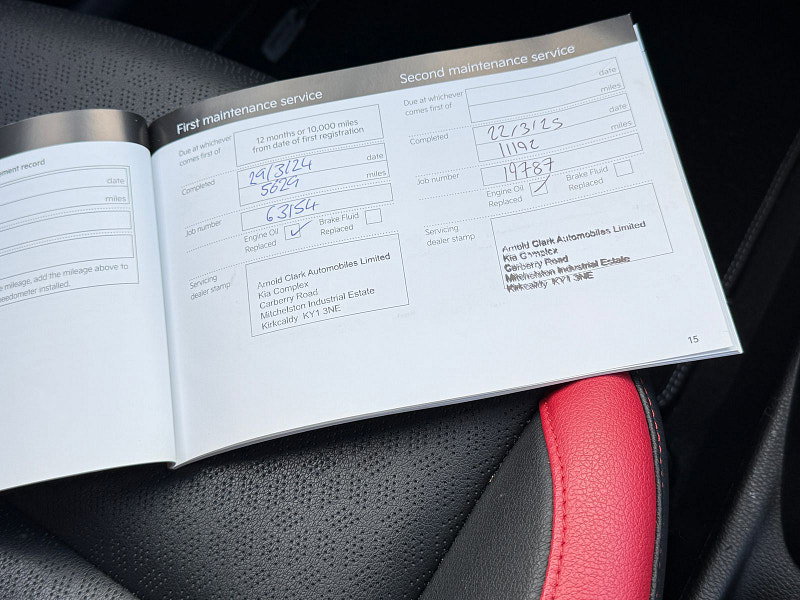 ement record
date
miles
e mileage, add the mileage above to
eedometer installed.
First maintenance service
Due at whichever
comes first of
12 months or 10,000 miles
from date of first registration
Completed
29/3/24
date
5629
miles
Job number
63154
Engine Oil
Replaced
Brake Fluid
Replaced
Servicing
dealer stamp
Arnold Clark Automobiles Limited
Kia Complex
Carberry Road
Mitchelston Industrial Estate
Kirkcaldy KY1 3NE
Second maintenance service
Due at whichever
comes first of
date
miles
Completed
22/3/25
date
11192
miles
Job number
19787
Engine Oil
Replaced
Brake Fluid
Replaced
Servicing
dealer stamp
Arnold Clark Automobiles Limited
Kia Complex
Carberry Road
Mitchelston Industrial Estate
Kirkcaldy KY1 3NE
15